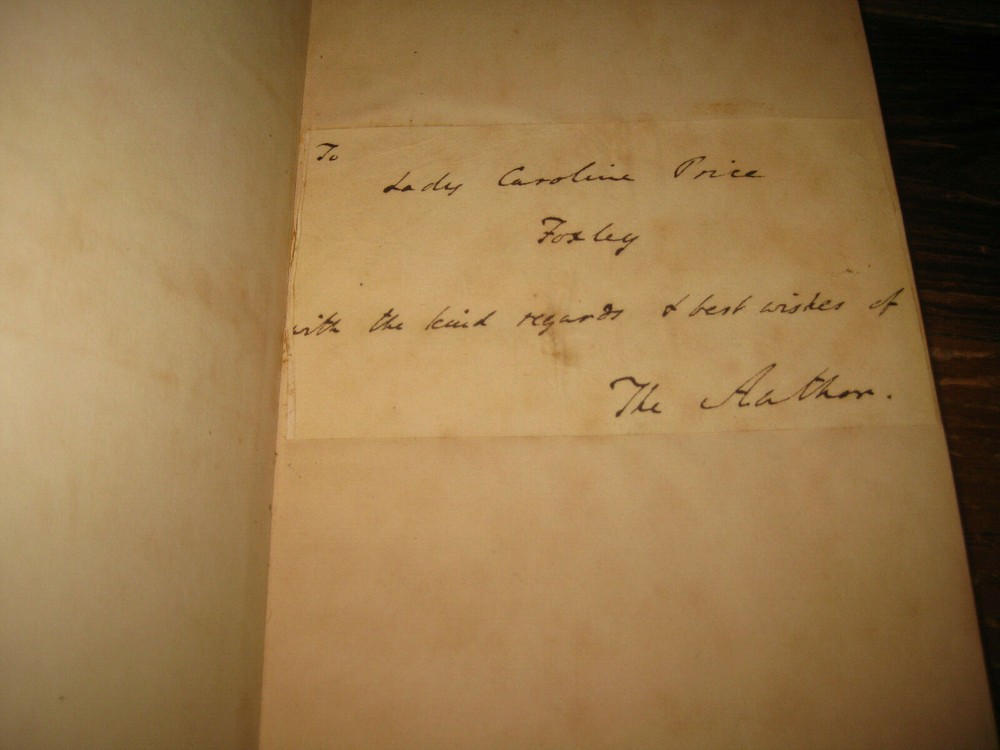 To
Lady Caroline Price
Foxley
with the kind regards & best wishes of
The Author.